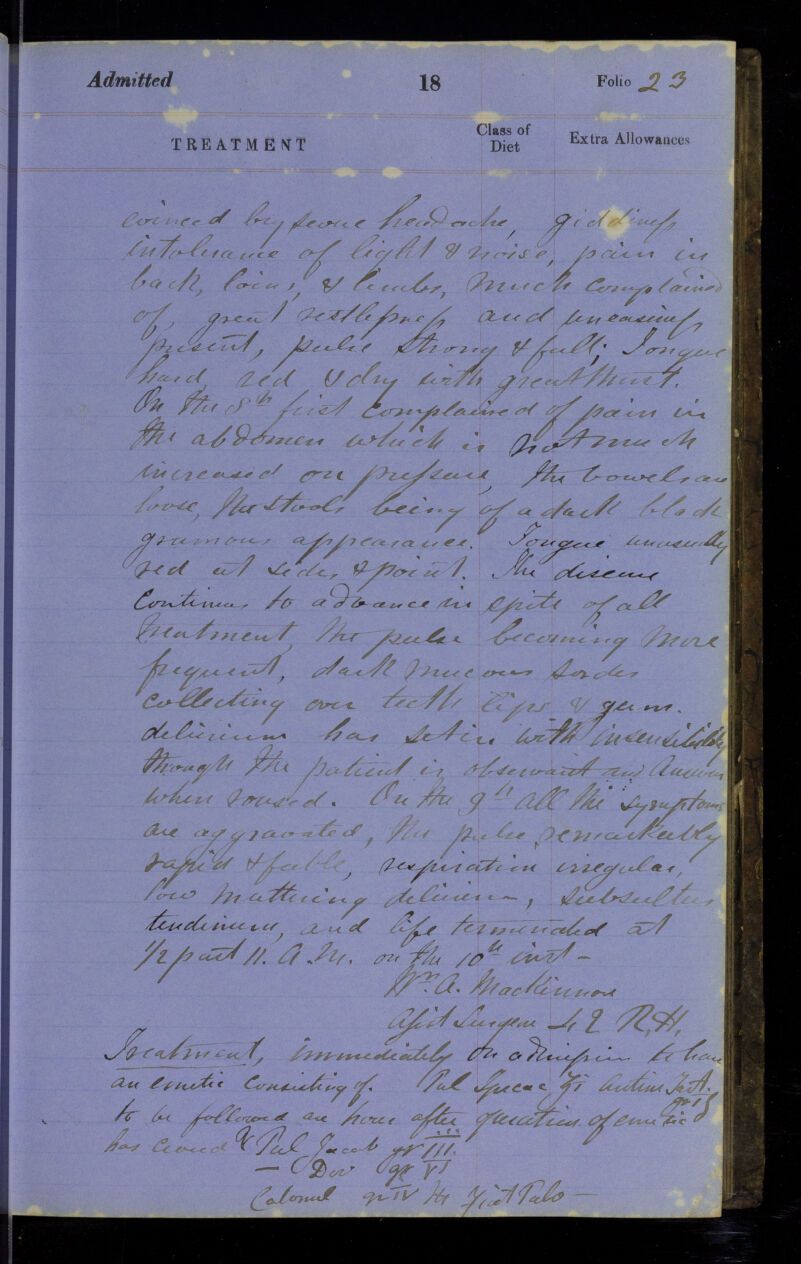 Admitted 18 Folio 23
TREATMENT Class of Diet Extra Allowances
evinced by severe headache, giddiness
intolerance of light & noise, pain in
back, loins, & limbs, much complained
of, great restlessness and uneasiness
present, pulse strong & full; Tongue
hard, red & dry with great thirst.
On the 8th first complained of pain in
the abdomen which is not much
increased on pressure, the bowels are
loose, the stools being of a dark black
grumous appearance. Tongue unusually
red at sides & point. The disease
continues to advance in spite of all
treatment, the pulse becoming more
frequent, dark mucous sordes
collecting over teeth lips & gums.
delirium has set in with insensibility
though the patient is observant and answers
when roused. On the 9th all the symptoms
are aggravated, the pulse remarkably
rapid & feeble, respiration irregular,
low muttering delirium, subsultus
tendinum, and life terminated at
1/2 past 11. A.M. on the 10th inst -
Wm. A. Mackinnon
Asst Surgeon 42 R.H.
Treatment, immediately on admission to have
an emetic consisting of. Pul Ipecac ʒi Antim Tart. gr i
to be followed an hour after operation of emetic
has ceased Pul Jacob gr III.
— Dov gr VI
Calomel gr IV Fiat Pulv —